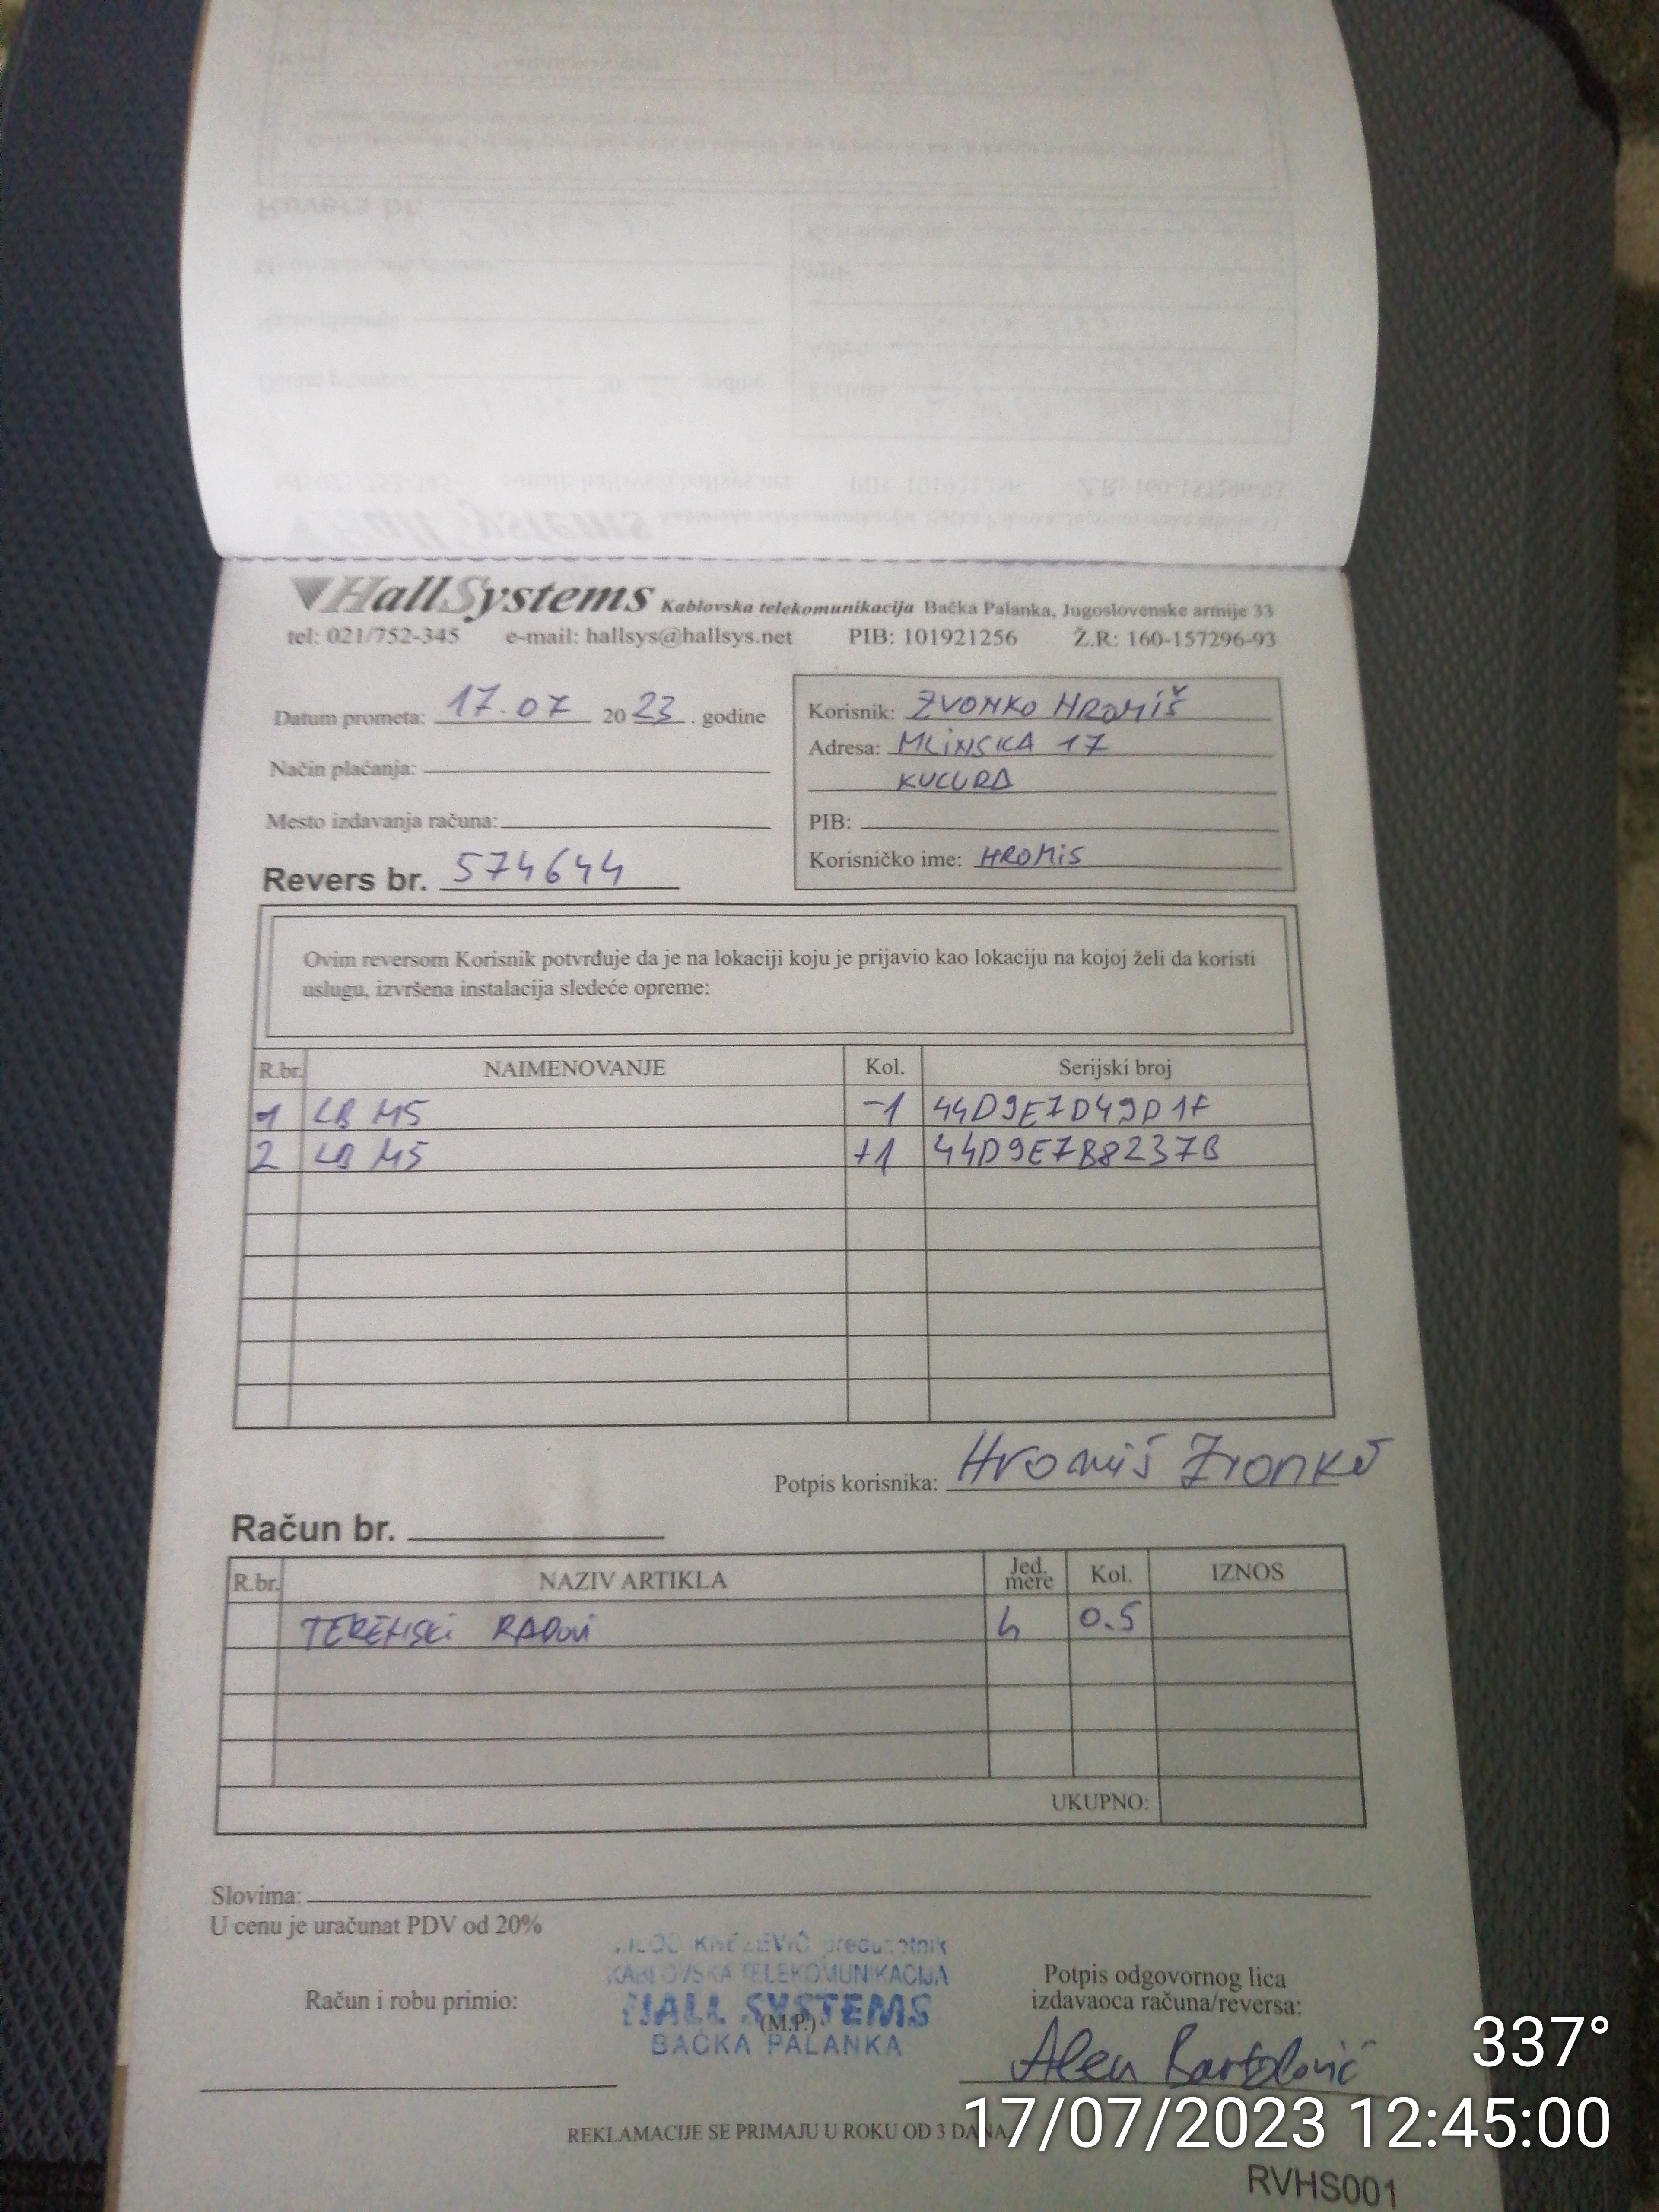 HallSystems Kablovska telekomunikacija Bačka Palanka, Jugoslovenske armije 33
tel: 021/752-345 e-mail: hallsys@hallsys.net PIB: 101921256 Ž.R: 160-157296-93
Datum prometa: 17.07 20 23 . godine
Način plaćanja:
Mesto izdavanja računa:
Revers br. 574644
Korisnik: ZVONKO HROMIŠ
Adresa: MLINSKA 17
KUCURA
PIB:
Korisničko ime: HROMIS
Ovim reversom Korisnik potvrđuje da je na lokaciji koju je prijavio kao lokaciju na kojoj želi da koristi
uslugu, izvršena instalacija sledeće opreme:
R.br. NAIMENOVANJE Kol. Serijski broj
1 LB M5 -1 44D9E7D49D1F
2 LB M5 +1 44D9E7B8237B
Potpis korisnika: Hromiš Zvonko
Račun br.
R.br. NAZIV ARTIKLA Jed. mere Kol. IZNOS
TERENSKI RADOVI h 0.5
UKUPNO:
Slovima:
U cenu je uračunat PDV od 20%
KNEŽEVIĆ preduzetnik
KABLOVSKA TELEKOMUNIKACIJA
HALL SYSTEMS
(M.P.)
BAČKA PALANKA
Račun i robu primio:
Potpis odgovornog lica
izdavaoca računa/reversa:
Alen Bartolović
REKLAMACIJE SE PRIMAJU U ROKU OD 3 DANA
RVHS001
337°
17/07/2023 12:45:00